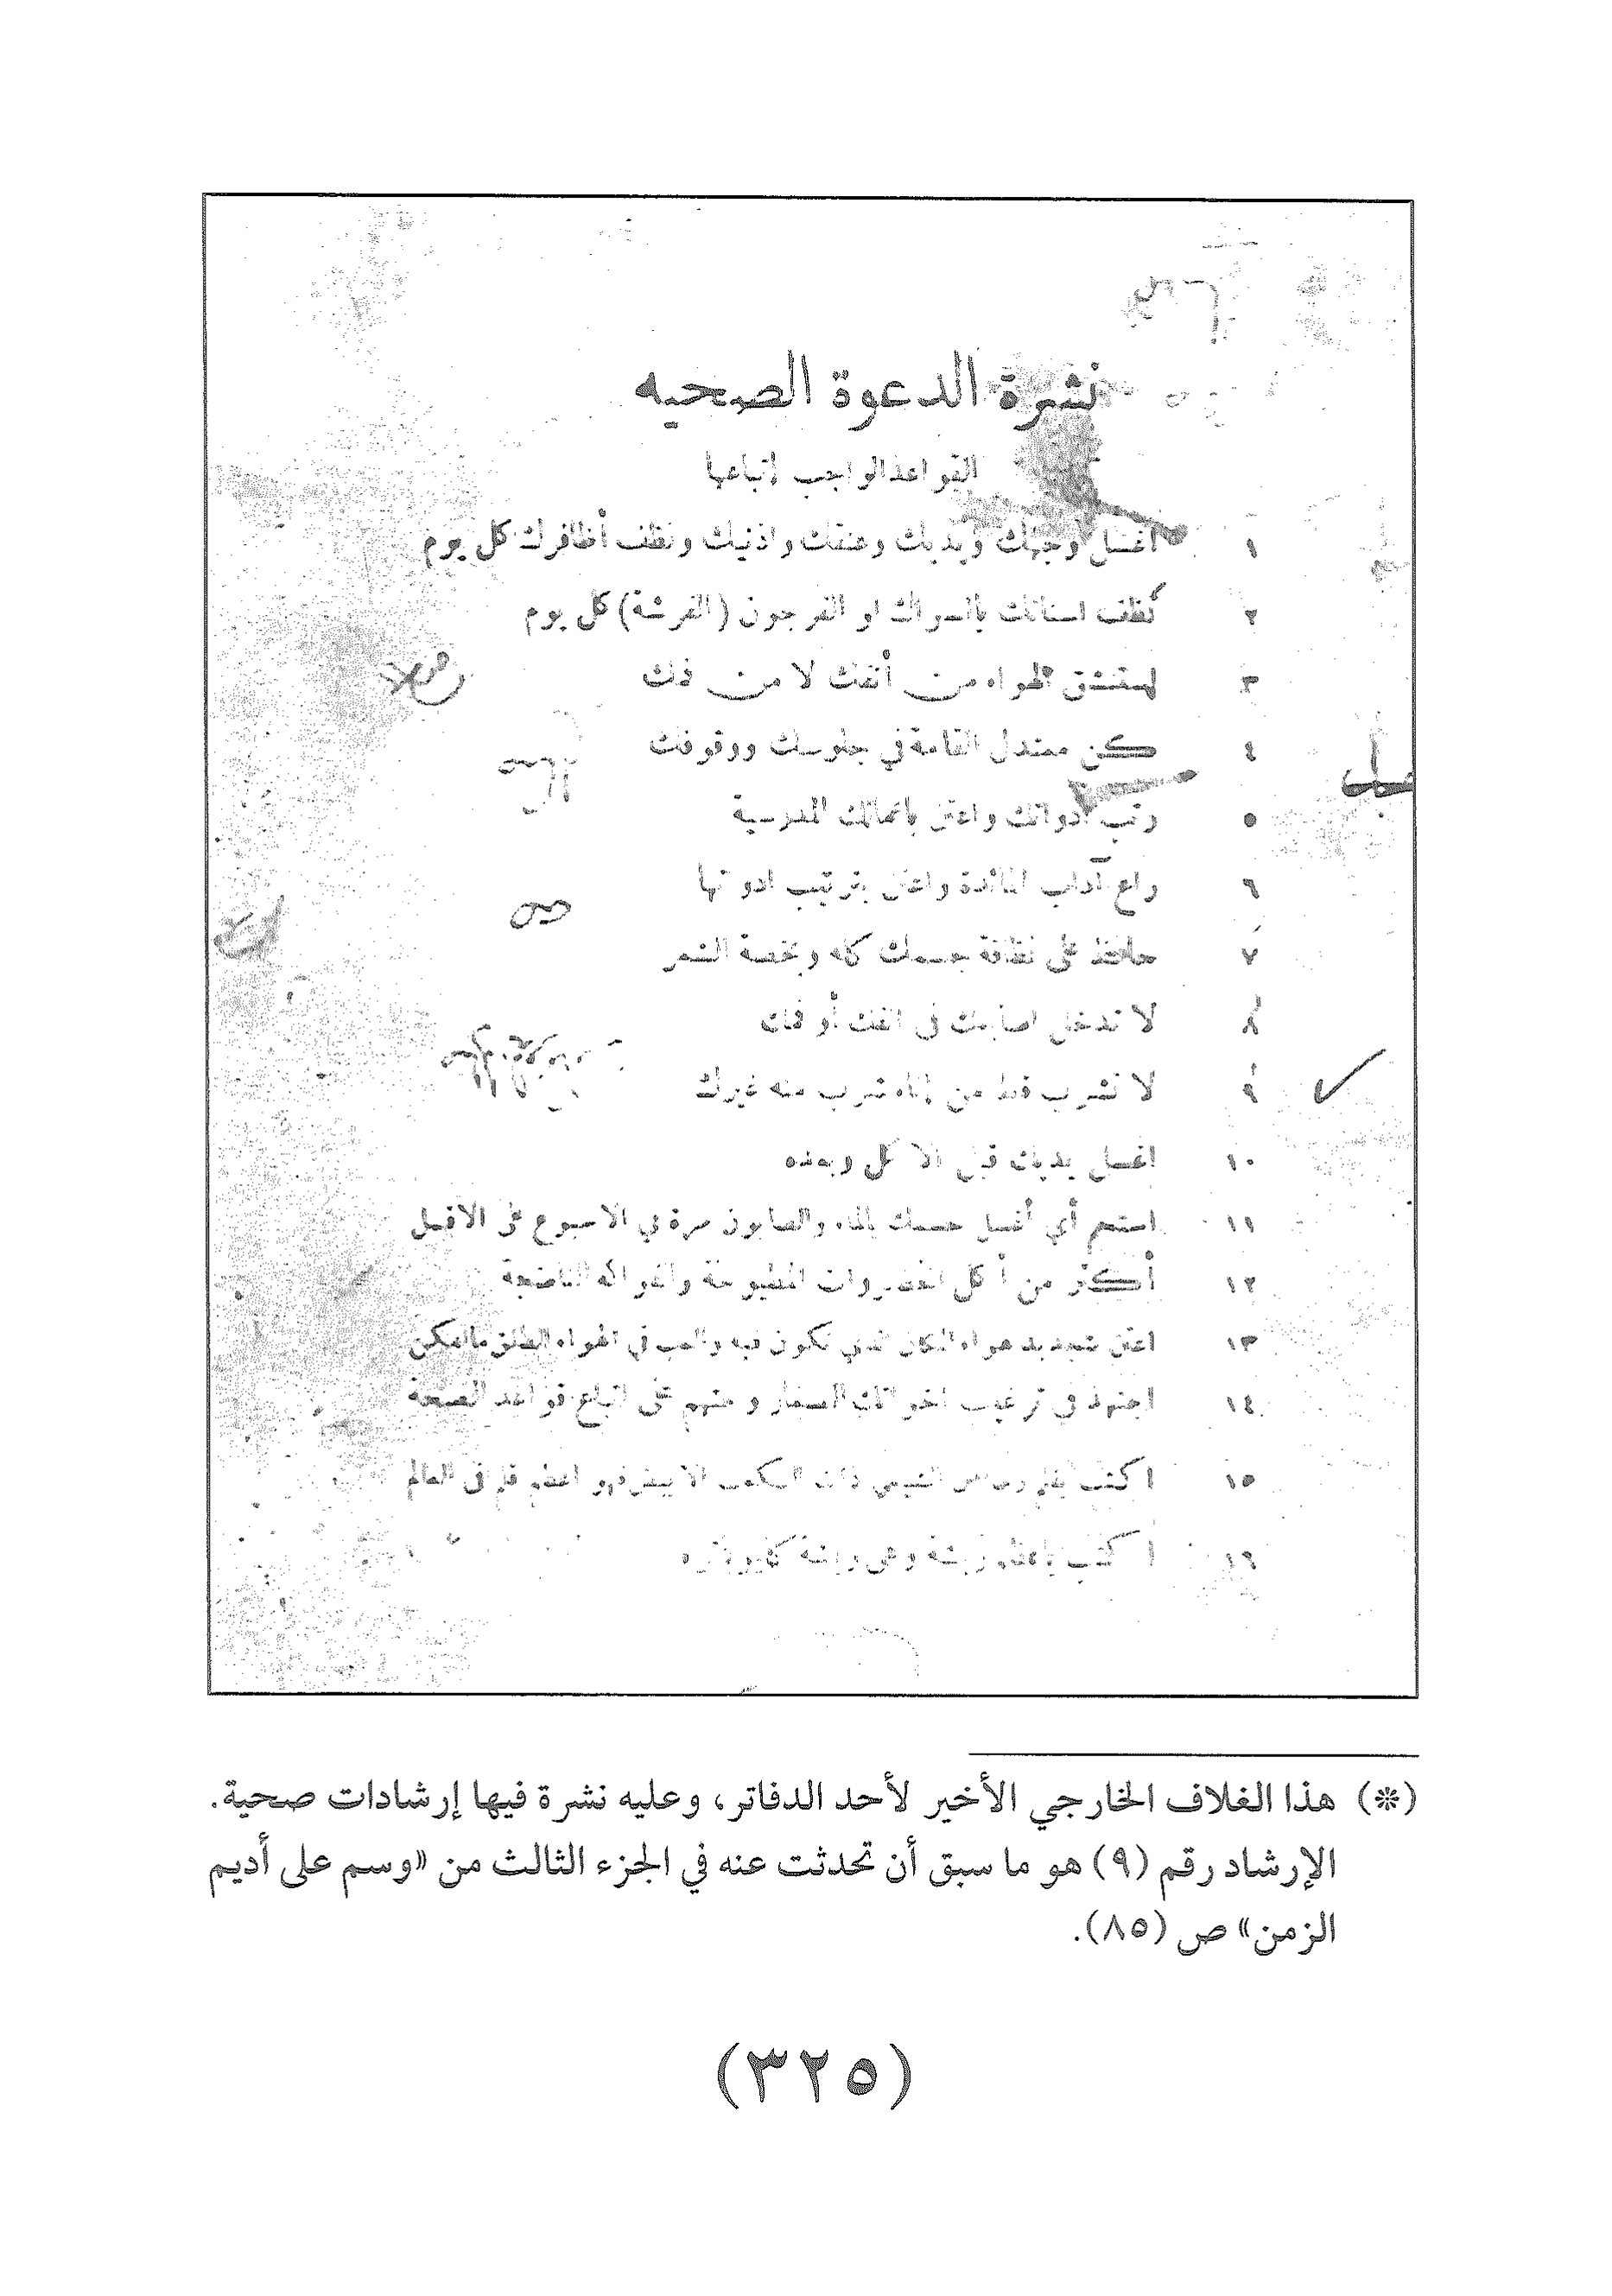 نشرة الدعوة الصحيه
القواعد الواجب إتباعها
١ أغسل وجهك ويديك وعنقك واذنيك ونظف أظافرك كل يوم
٢ نظف اسنانك بالسواك او الفرجون (الفرشة) كل يوم
٣ إستنشق الهواء من أنفك لا من فمك
٤ كن معتدل القامة في جلوسك ووقوفك
٥ رتب أدواتك واعتن بأعمالك المدرسية
٦ راع آداب المائدة واعتن بترتيب ادواتها
٧ حافظ على نظافة جسمك كله وبخاصة الشعر
٨ لا تدخل اصابعك في انفك أو فمك
٩ لا تشرب قط من إناء شرب منه غيرك
١٠ اغسل يديك قبل الاكل وبعده
١١ استحم أي أغسل جسمك بالماء والصابون مرة في الاسبوع على الاقل
١٢ أكثر من أكل الخضروات المطبوخة والفواكه الناضجة
١٣ اعتن بتجديد هواء المكان الذي تكون فيه والعب في الهواء الطلق ما أمكن
١٤ اجتهد في ترغيب اخوانك الصغار وحثهم على اتباع قواعد الصحة
١٥ اكتب بقلم رصاص الكعب الابيض فهو اعظم قلم في العالم
١٦ أكتب
(*) هذا الغلاف الخارجي الأخير لأحد الدفاتر، وعليه نشرة فيها إرشادات صحية.
الإرشاد رقم (٩) هو ما سبق أن تحدثت عنه في الجزء الثالث من «وسم على أديم
الزمن» ص (٨٥).
(٣٢٥)